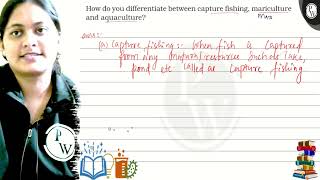 How do you differentiate between capture fishing, mariculture
and aquaculture?
Ans:-
(a) Capture fishing :- When fish is captured
from any (natural) resources such as lake,
pond etc called as capture fishing
P
W